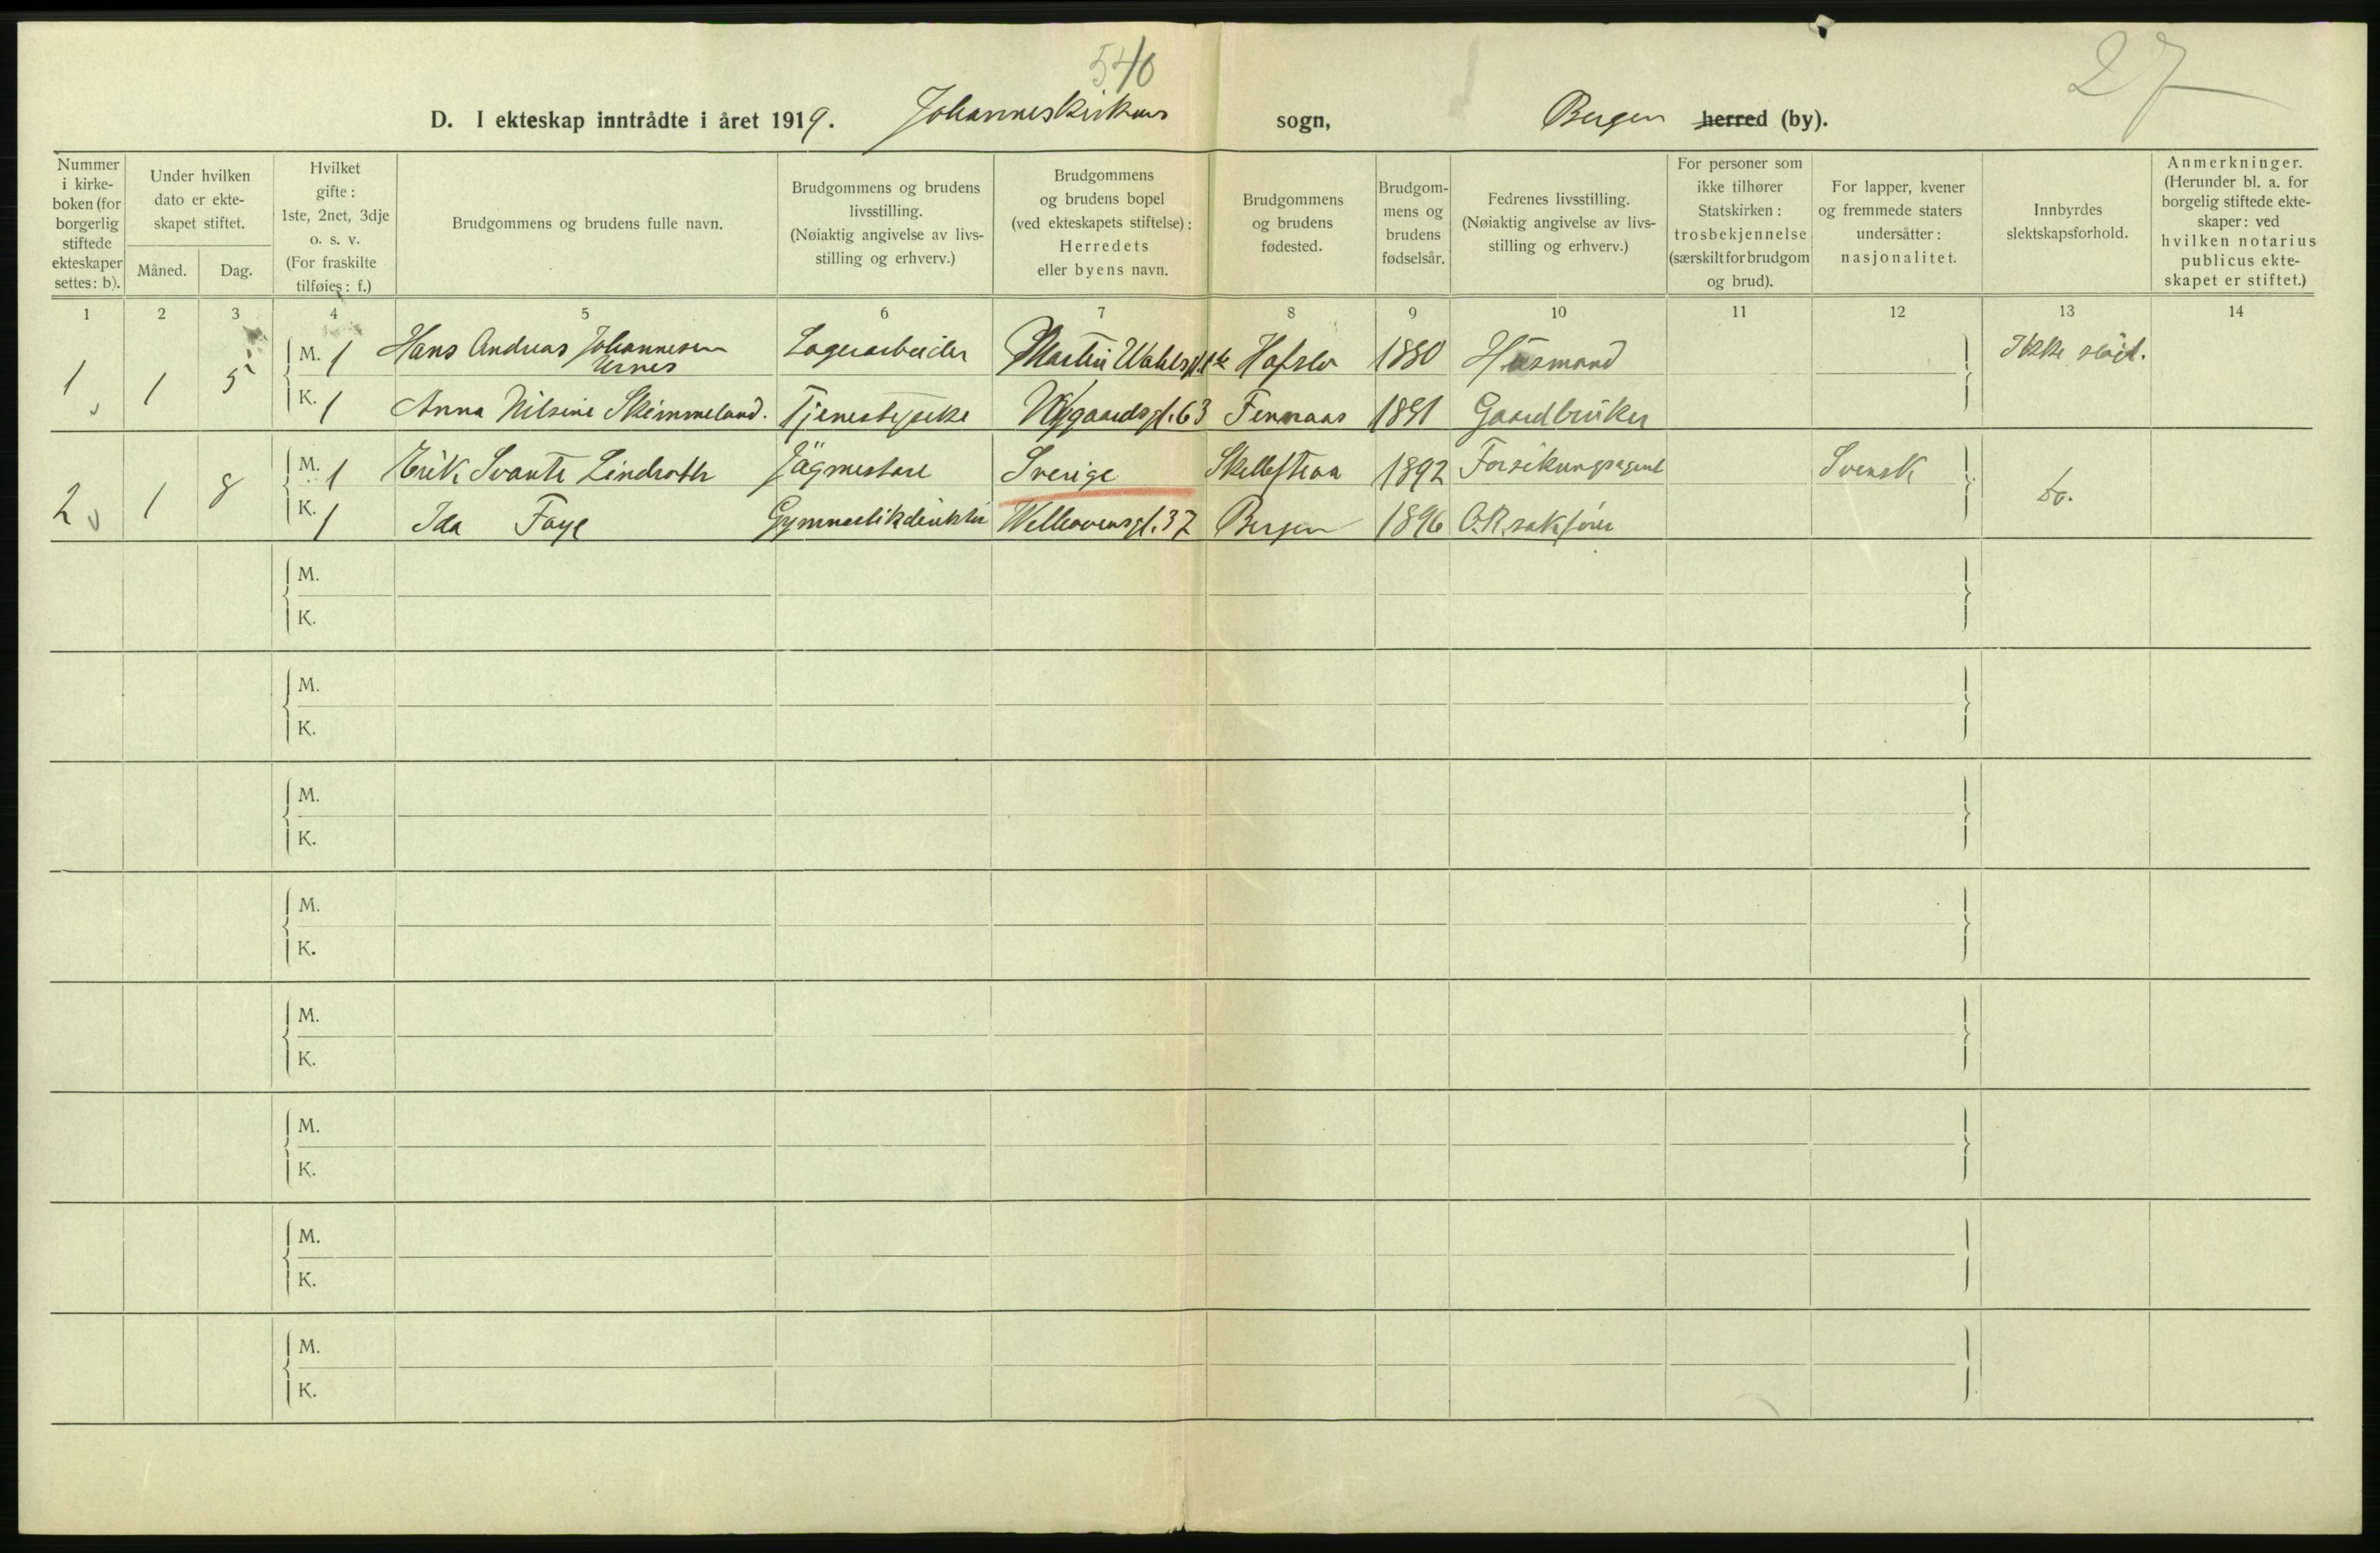 540
27
D. I ekteskap inntrådte i året 1919. Johanneskirkens sogn, Bergen herred (by).
Nummer i kirke-boken (for borgerlig stiftede ekteskaper settes: b).
Under hvilken dato er ekte-skapet stiftet.
Måned. Dag.
Hvilket gifte: 1ste, 2net, 3dje o. s. v. (For fraskilte tilføies: f.)
Brudgommens og brudens fulle navn.
Brudgommens og brudens livsstilling. (Nøiaktig angivelse av livs-stilling og erhverv.)
Brudgommens og brudens bopel (ved ekteskapets stiftelse): Herredets eller byens navn.
Brudgommens og brudens fødested.
Brudgom-mens og brudens fødselsår.
Fedrenes livsstilling. (Nøiaktig angivelse av livs-stilling og erhverv.)
For personer som ikke tilhører Statskirken: trosbekjennelse (særskilt for brudgom og brud).
For lapper, kvener og fremmede staters undersåtter: nasjonalitet.
Innbyrdes slektskapsforhold.
Anmerkninger. (Herunder bl. a. for borgelig stiftede ekte-skaper: ved hvilken notarius publicus ekte-skapet er stiftet.)
1 2 3 4 5 6 7 8 9 10 11 12 13 14
1 1 5 M. 1 Hans Andreas Johannesen Urnes Lagerarbeider Martin Wahlsgt. Hafslo 1880 Husmand Ikke
K. 1 Anna Nilsine Skimmeland. Tjenestepike Nygaardsgt. 63 Fennaas 1891 Gaardbruker
2 1 8 M. 1 Erik Svante Lindroth Jägmestare Sverige Skellefteaa 1892 Forsikringsagent Svensk do.
K. 1 Ida Faye Gymnastikdirektør Welhavensgt. 37 Bergen 1896 O.R.sakfører
M.
K.
M.
K.
M.
K.
M.
K.
M.
K.
M.
K.
M.
K.
M.
K.